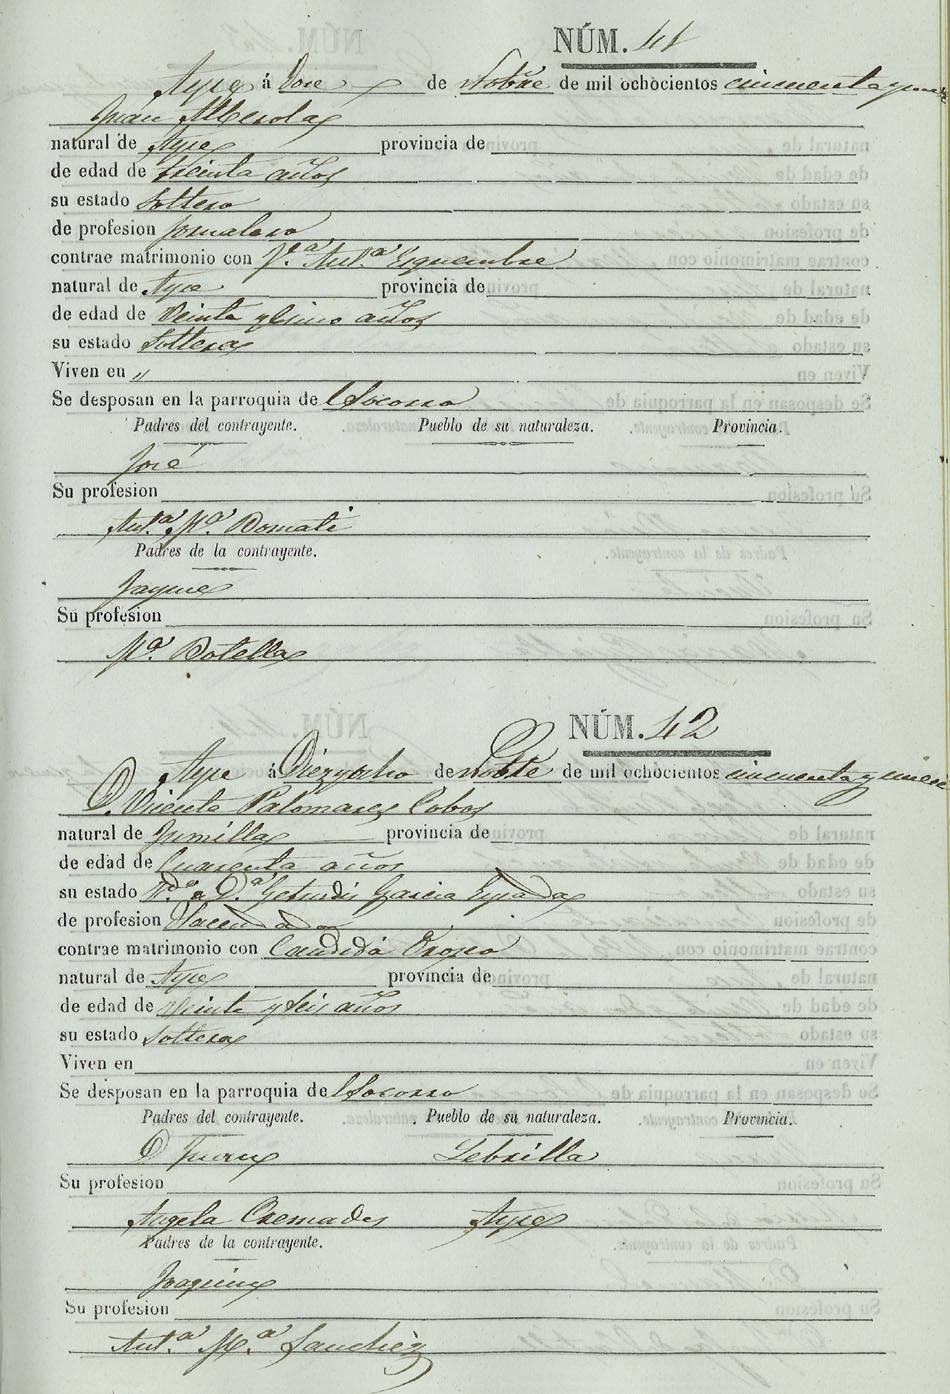 NÚM. 41
Aspe á Doce de Nobre de mil ochocientos cincuenta y nueve
Juan Alberola
natural de Aspe provincia de
de edad de treinta años
su estado Soltero
de profesion jornalero
contrae matrimonio con Ja Anta
natural de Aspe provincia de
de edad de Veinte y cinco años
su estado Soltera
Viven en "
Se desposan en la parroquia de l Socorro
Padres del contrayente. Pueblo de su naturaleza. Provincia.
José
Su profesion
Anta Ma
Padres de la contrayente.
Jayme
Su profesion
Ma Botella
NÚM. 42
Aspe á Diezyocho de Nobre de mil ochocientos cincuenta y nueve
D. Vicente Palomares Cobos
natural de Jumilla provincia de
de edad de Cuarenta años
su estado Vdo a Da Getrudis Garcia
de profesion Hacendado
contrae matrimonio con Candida
natural de Aspe provincia de
de edad de Veinte y seis años
su estado Soltera
Viven en
Se desposan en la parroquia de l Socorro
Padres del contrayente. Pueblo de su naturaleza. Provincia.
D Juan Lebrilla
Su profesion
Angela Cremades Aspe
Padres de la contrayente.
Joaquin
Su profesion
Anta Ma Sanchiz